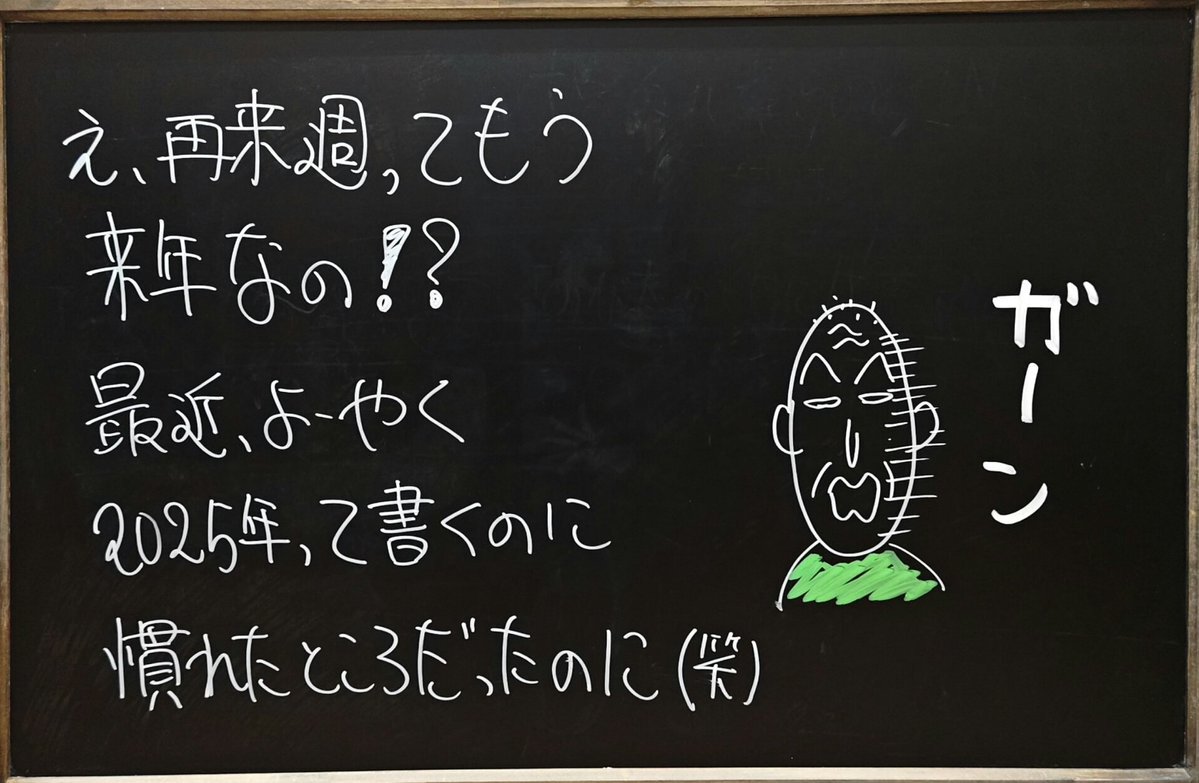 え、再来週ってもう
来年なの!?
最近、よーやく
2025年、って書くのに
慣れたところだったのに(笑)
ガーン